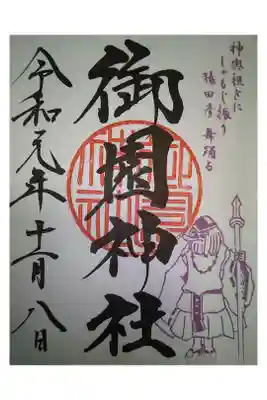 神輿担ぎに
しゃもじ振り
猿田彦舞踊る
御園神社
令和元年十一月八日